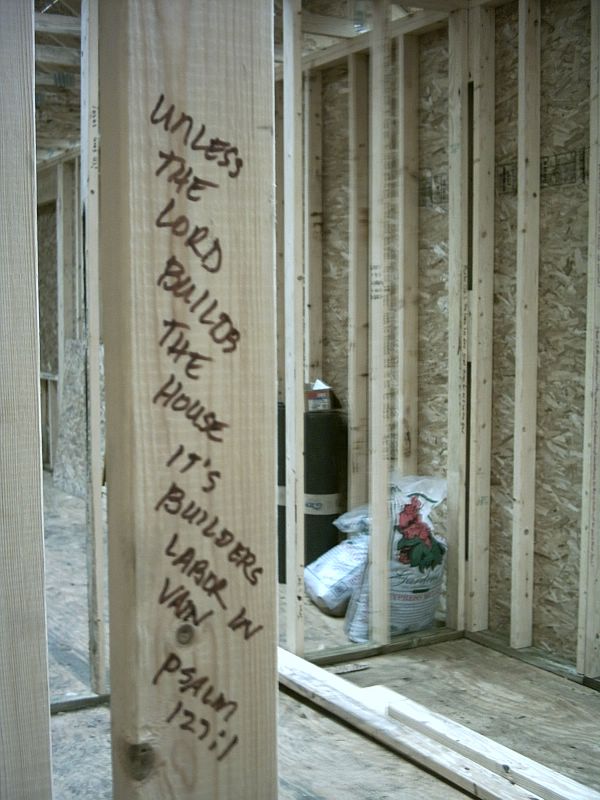 UNLESS
THE
LORD
BUILDS
THE
HOUSE
IT'S
BUILDERS
LABOR IN
VAIN
PSALM
127:1
Garden